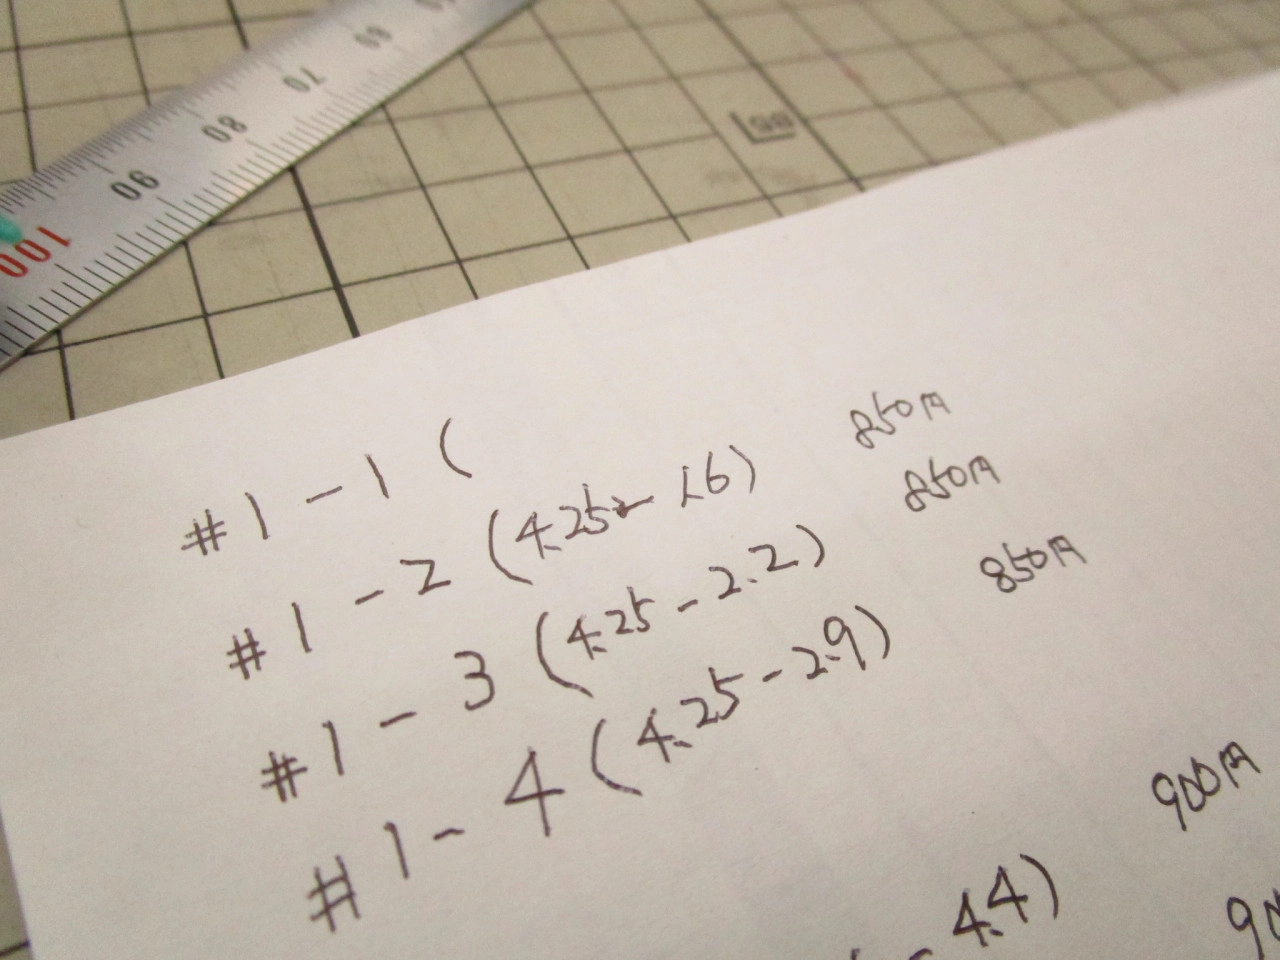 60
70
80
90
100
B5
#1-1 (
#1-2 (4.25-1.6) 850円
#1-3 (4.25-2.2) 850円
#1-4 (4.25-2.9) 850円
900円
4.4)